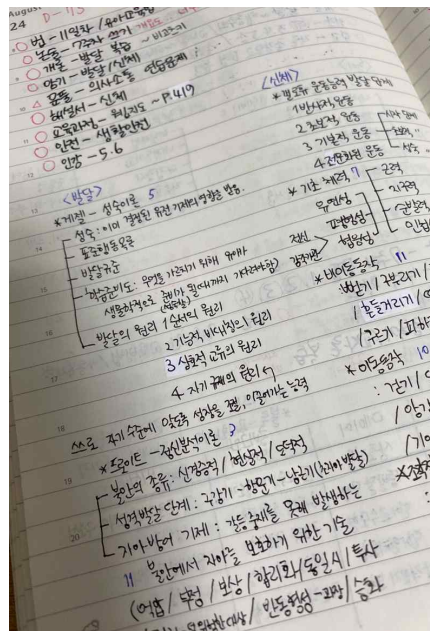 August
24 D-113
법 - 11일차 / 유아교육법
논술 - 7주차 암기
개론 - 발달 복습
암기 - 발달 / 신체
몸풀 - 의사소통 연습문제
해설서 - 신체
교육과정 - 뒷심지도 ~ P.419
안전 - 생활안전
인강 - 5.6
<발달>
* 게젤 - 성숙이론 5
성숙 : 이미 결정된 유전 기제의 영향을 받음.
표준행동목록
발달규준
학습준비도 : 무엇을 가르치기 위해 유아가
생물학적으로 준비가 될 때까지 기다려야함)
발달의 원리 1 순서의 원리
2 기능적 비대칭의 원리
3 상호적 교류의 원리
4 자기 규제의 원리
스스로 자기 수준에 알맞도록 성장을 조절, 이끌어가는 능력
* 프로이트 - 정신분석이론 3
불안의 종류 : 신경증적 / 현실적 / 도덕적
성격발달 단계 : 구강기 - 항문기 - 남근기
자아 방어 기제 : 갈등 중재를 못해 발생하는
11 불안에서 자아를 보호하기 위한 기술
(억압 / 부정 / 보상 / 합리화 / 동일시 / 투사
반동형성 - 과장 / 승화
<신체>
* 갤러휴 운동능력 발달 단계
1 반사적 운동
2 초보적 운동
3 기본적 운동
4 전문화된 운동
* 기초 체력 7
근력
지구력
순발력
유연성
평형성
협응성
* 비이동동작 11
: 뻗기 / 구부리기 /
/ 흔들거리기 /
/ 구르기 / 피하기
* 이동동작 10
: 걷기 /